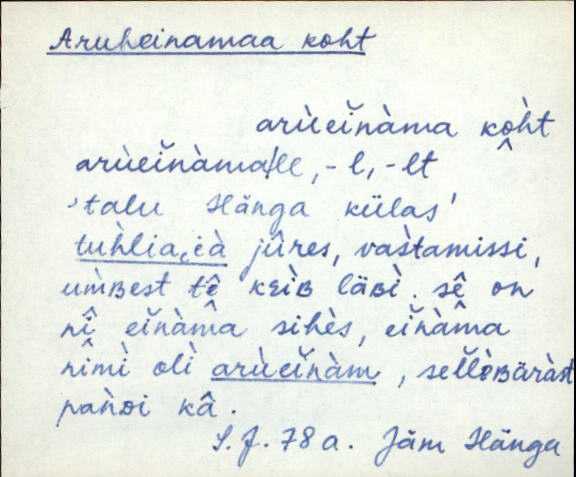 Aruheinamaa koht
arùeĭnàma kọ̀̂ht
arùeĭnàmalle, -l, -lt
'talu Hänga külas'
tuh̀lia,ià jûres, vas̀tamissi,
um̀ʙest tê̬ ᴋɛìʙ läʙì. sê̬ on
nî eĭnàmâ sihès, eĭnàmâ
nîmì olì arùeĭnàm, sellè̬ʙäràst
pan̆ᴅi kâ.
S.J. 78 a. Jäm Hänga